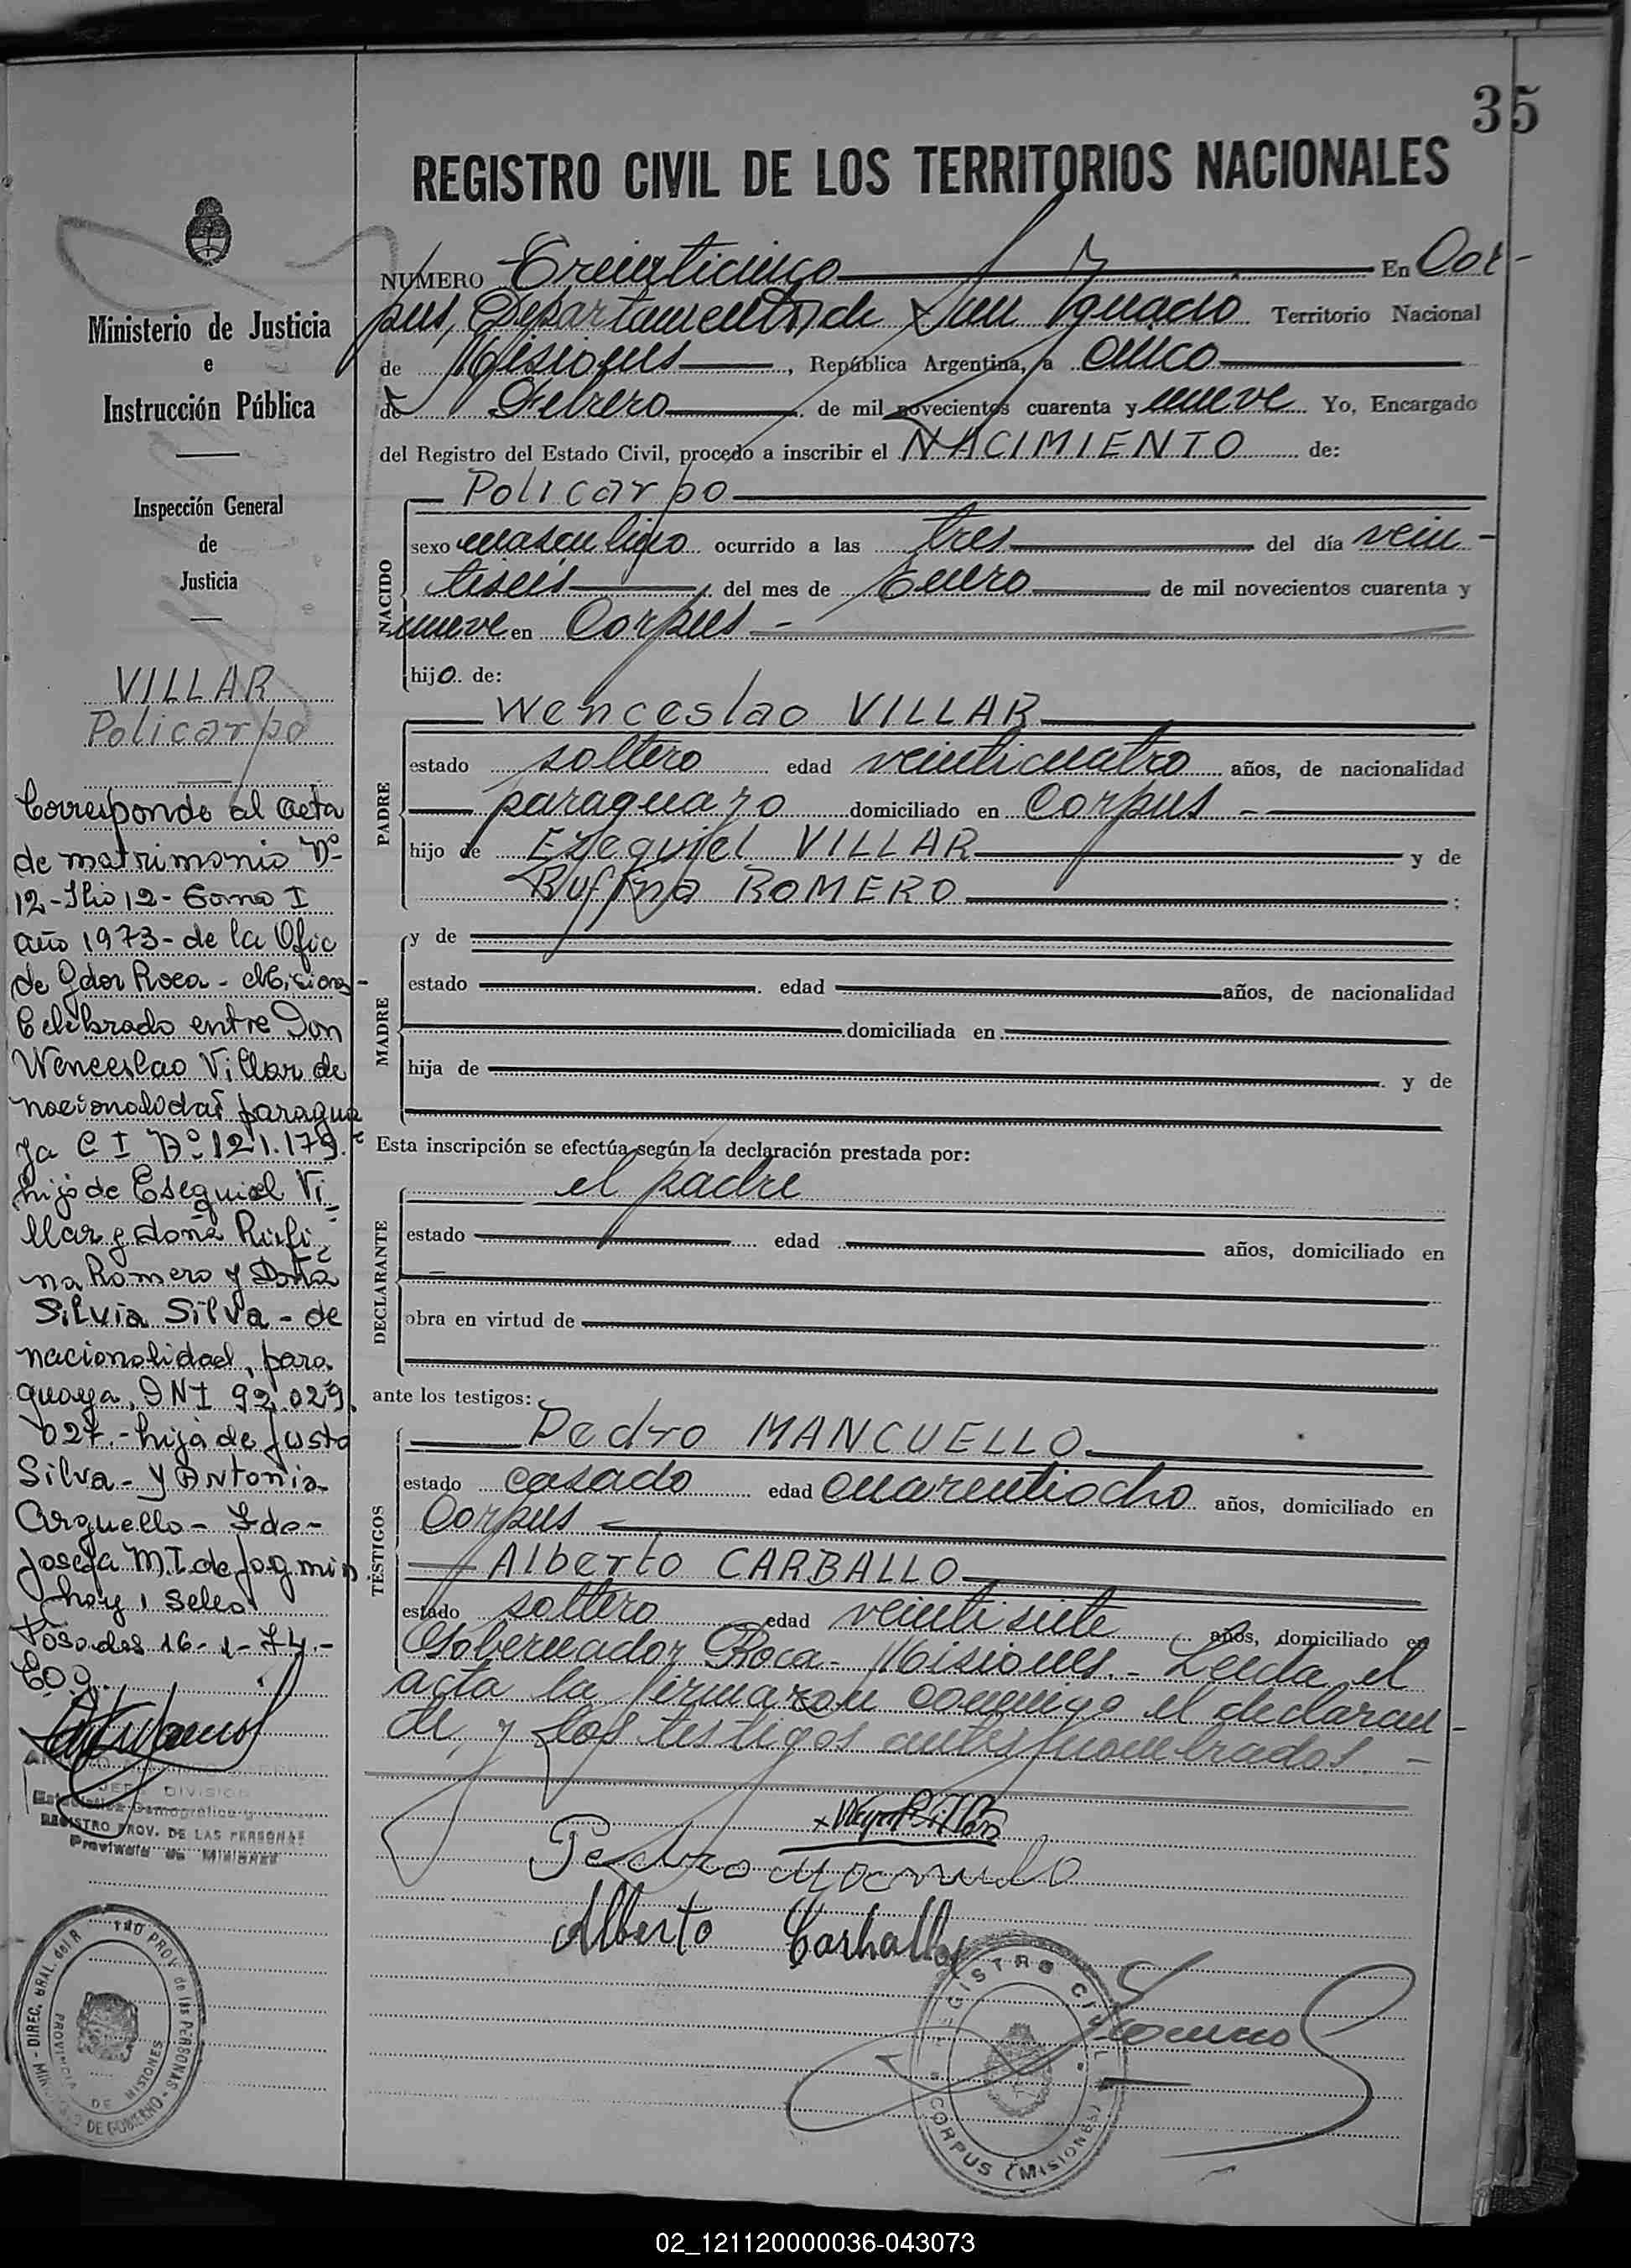 35
REGISTRO CIVIL DE LOS TERRITORIOS NACIONALES
Ministerio de Justicia
e
Instrucción Pública
Inspección General
de
Justicia
VILLAR
Policarpo
Corresponde al acta
de matrimonio Nº
12 - Flio 12 - Tomo I
año 1973 - de la Ofic
de Gdor Roca - Misiones -
Celebrado entre Don
Wenceslao Villar de
nacionalidad paragua
ya C I Nº 121.179.
hijo de Esequiel Vi
llar y doña Rufi
na Romero y Doña
Silvia Silva - de
nacionalidad, para
guaya, DNI 92.029.
027.- hija de Justo
Silva - y Antonia
Arguello - Fdo -
Josefa M.T. de
hay 1 sello
Posadas 16-1-74.-
JEFE DIVISION
Estadística Demográfica
REGISTRO PROV. DE LAS PERSONAS
Provincia de Misiones
DIREC. GRAL. del R TRO PROV. de las PERSONAS - MINISTERIO DE GOBIERNO -
PROVINCIA DE MISIONES
NUMERO Treinticinco En Cor-
pus, Departamento de San Ignacio Territorio Nacional
de Misiones, República Argentina, a cinco
de Febrero de mil novecientos cuarenta y nueve Yo, Encargado
del Registro del Estado Civil, procedo a inscribir el NACIMIENTO de:
NACIDO
Policarpo
sexo masculino ocurrido a las tres del día vein-
tiseis del mes de Enero de mil novecientos cuarenta y
nueve en Corpus -
hijo de:
PADRE
Wenceslao VILLAR
estado soltero edad veinticuatro años, de nacionalidad
paraguayo domiciliado en Corpus -
hijo de Ezequiel VILLAR y de
Ruffina ROMERO :
MADRE
y de
estado edad años, de nacionalidad
domiciliada en
hija de y de
Esta inscripción se efectúa según la declaración prestada por:
DECLARANTE
el padre
estado edad años, domiciliado en
obra en virtud de
ante los testigos:
TESTIGOS
Pedro MANCUELLO
estado casado edad cuarentiocho años, domiciliado en
Corpus -
Alberto CARBALLO
estado soltero edad veintisiete años, domiciliado en
Gobernador Roca - Misiones. - Leída el
acta la firmaron conmigo el declaran-
te, y los testigos antes nombrados. -
Alberto Carballo
REGISTRO CIVIL
CORPUS (MISIONES)
02_121120000036-043073